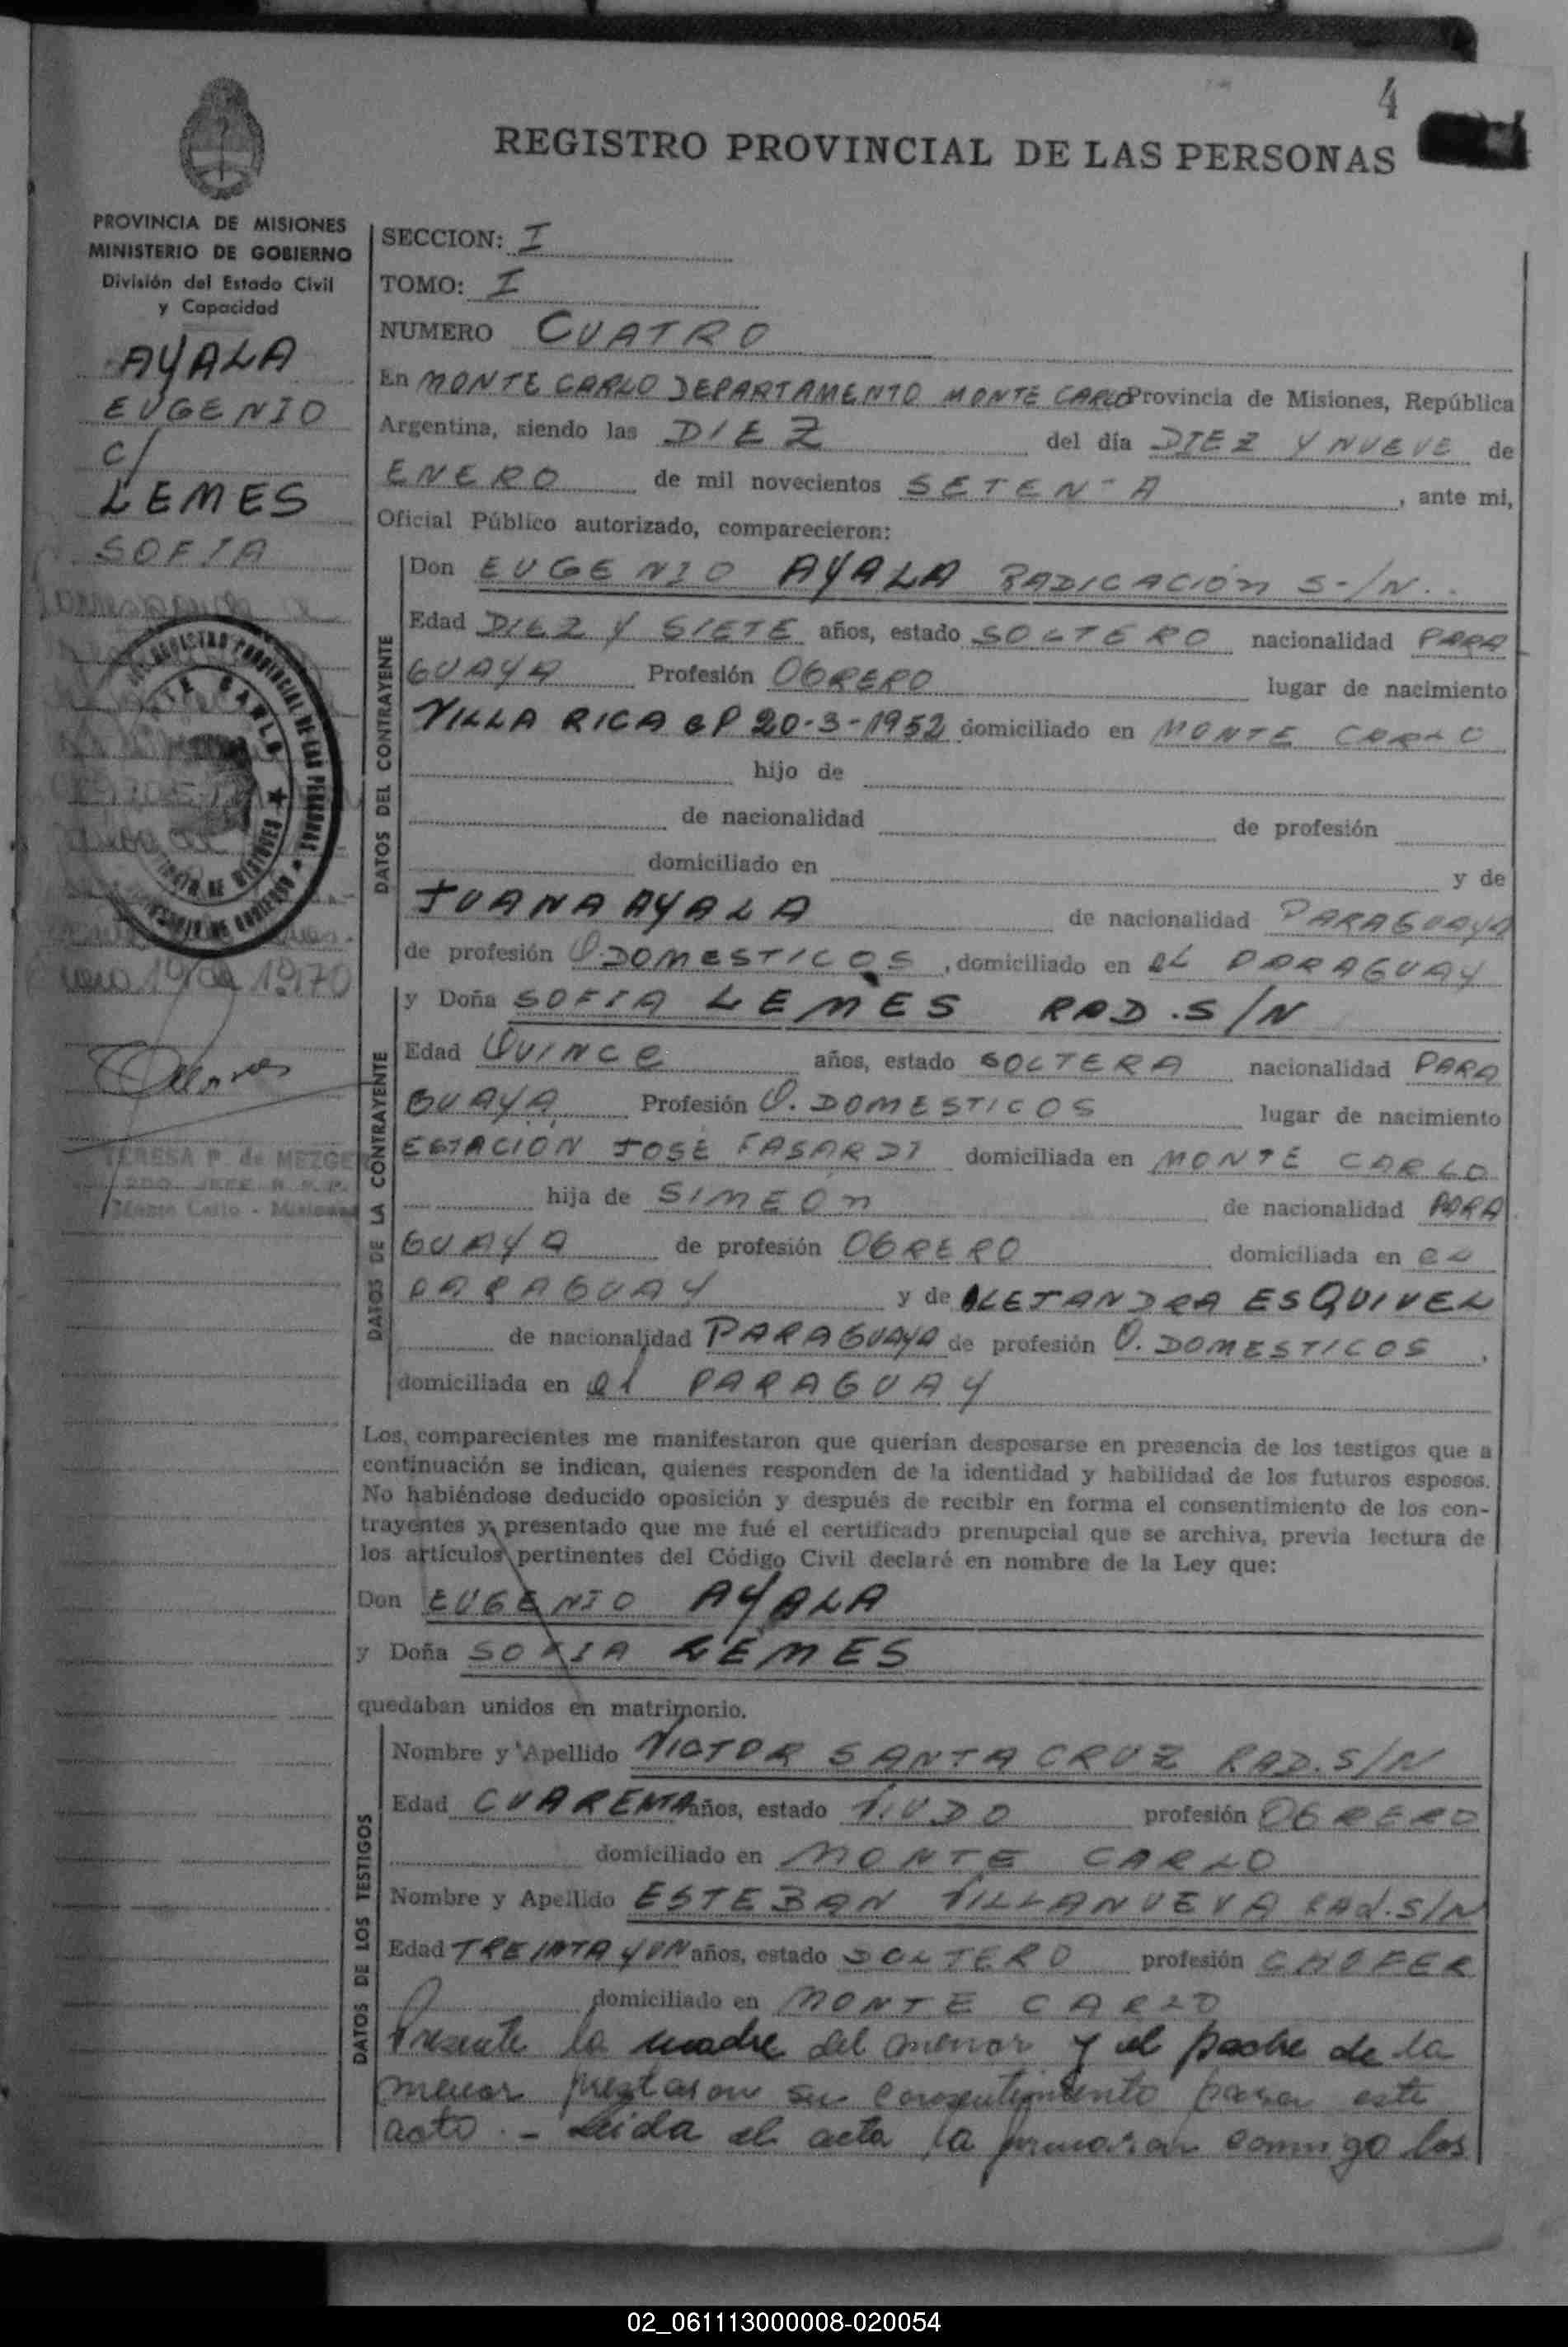 4
REGISTRO PROVINCIAL DE LAS PERSONAS
PROVINCIA DE MISIONES
MINISTERIO DE GOBIERNO
División del Estado Civil
y Capacidad
AYALA
EUGENIO
c/
LEMES
SOFIA
19 de 1970
TERESA P. de MEZGER
Monte Carlo - Misiones
SECCION: I
TOMO: I
NUMERO CUATRO
En MONTE CARLO DEPARTAMENTO MONTE CARLO Provincia de Misiones, República
Argentina, siendo las DIEZ del día DIEZ Y NUEVE de
ENERO de mil novecientos SETENTA, ante mi,
Oficial Público autorizado, comparecieron:
DATOS DEL CONTRAYENTE
Don EUGENIO AYALA RADICACIÓN S-/N..
Edad DIEZ Y SIETE años, estado SOLTERO nacionalidad PARA
GUAYA Profesión OBRERO lugar de nacimiento
VILLA RICA EP 20-3-1952 domiciliado en MONTE CARLO
hijo de
de nacionalidad de profesión
domiciliado en y de
JUANA AYALA de nacionalidad PARAGUAYA
de profesión Q. DOMESTICOS, domiciliado en EL PARAGUAY
DATOS DE LA CONTRAYENTE
y Doña SOFIA LEMES RAD. S/N
Edad QUINCE años, estado SOLTERA nacionalidad PARA
GUAYA Profesión Q. DOMESTICOS lugar de nacimiento
ESTACIÓN JOSÉ FASARDI domiciliada en MONTE CARLO
hija de SIMEÓN de nacionalidad PARA
GUAYA de profesión OBRERO domiciliada en EL
PARAGUAY y de ALEJANDRA ESQUIVEL
de nacionalidad PARAGUAYA de profesión Q. DOMESTICOS,
domiciliada en el PARAGUAY
Los comparecientes me manifestaron que querían desposarse en presencia de los testigos que a
continuación se indican, quienes responden de la identidad y habilidad de los futuros esposos.
No habiéndose deducido oposición y después de recibir en forma el consentimiento de los con-
trayentes y presentado que me fué el certificado prenupcial que se archiva, previa lectura de
los artículos pertinentes del Código Civil declaré en nombre de la Ley que:
Don EUGENIO AYALA
y Doña SOFIA LEMES
quedaban unidos en matrimonio.
DATOS DE LOS TESTIGOS
Nombre y Apellido VICTOR SANTA CRUZ RAD. S/N
Edad CUARENTA años, estado VIUDO profesión OBRERO
domiciliado en MONTE CARLO
Nombre y Apellido ESTEBAN VILLANUEVA RAD. S/N
Edad TREINTA Y UN años, estado SOLTERO profesión CHOFER
domiciliado en MONTE CARLO
Presente la madre del menor y el padre de la
menor prestaron su consentimiento para este
acto. - Leida el acta la firmaron conmigo los
02_061113000008-020054